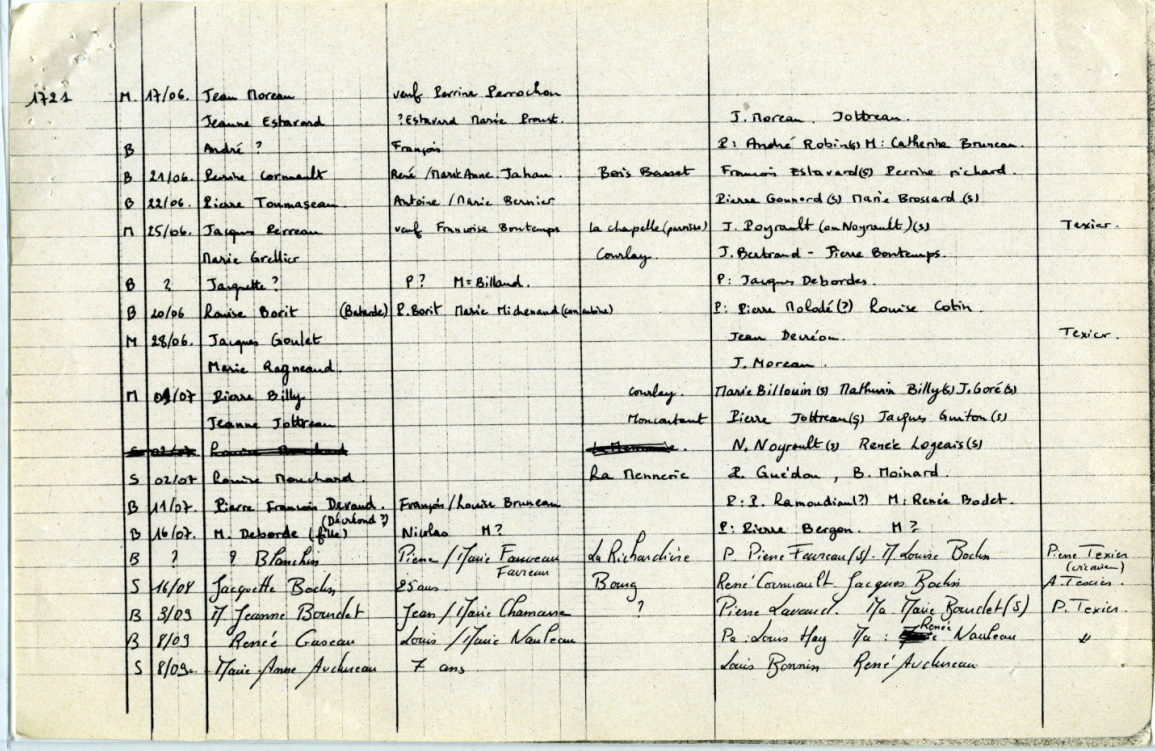 1721 M. 17/06. Jean Moreau veuf Perrine Perrochon
Jeanne Estavard ? Estavard Marie Proust. J. Moreau. Jottreau.
B André ? François P: André Robin(s) M: Catherine Bruneau.
B 21/06. Perrine Cormault René / Marie Anne Jahan Bois Basset François Estavard(s) Perrine Richard.
B 22/06. Pierre Toumaseau. Antoine / Marie Bernier Pierre Gonnord (s) Marie Brossard (s)
M 25/06. Jacques Perreau veuf Françoise Bontemps La chapelle (paroisse) J. Poyrault (ou Noyrault)(s) Texier.
Marie Grellier Courlay. J. Bertrand - Pierre Bontemps.
B ? Jacquette ? P? M = Billaud. P: Jacques Debordes.
B 20/06 Louise Borit (Batarde) P. Borit Marie Michenaud (concubine) P: Pierre Molodé(?) Louise Cotin.
M 28/06. Jacques Goulet Jean Decréon. Texier.
Marie Ragneaud. J. Moreau.
M /07 Pierre Billy Courlay. Marie Billouin (s) Mathurin Billy(s) J. Goré(s)
Jeanne Jottreau Moncoutant Pierre Jottreau(s) Jacques Guiton(s)
N. Noyrault(s) Renée Logeais(s)
S 02/07 Louise Mouchard. La Mennerie P. Guédon, B. Moinard.
B 11/07. Pierre François Devaud. François / Louise Bruneau P: P. Ramoudiau(?) M: Renée Bodet.
(Décréond ?)
B 16/07. M. Deborde (fille) Nicolas M? P: Pierre Bergon. M?
B ? ? Blanchin Pierre / Marie Fauveau La Richardière P. Pierre Favreau (s). M Louise Bodin Pierre Texier
Favreau (vicaire)
S 16/08 Jacquette Bodin 25 ans Bourg René Cormuault Jacques Bodin A. Texier.
B 3/09 M Jeanne Boudet Jean / Marie Chamarre ? Pierre Lavaud. Ma Marie Boudet (s) P. Texier.
B 8/09 Renée Gaseau Louis / Marie Nauleau Pa : Louis Hay Ma : Renée Nauleau "
S 8/09. Marie Anne Audureau 7 ans Louis Bonnin René Audureau